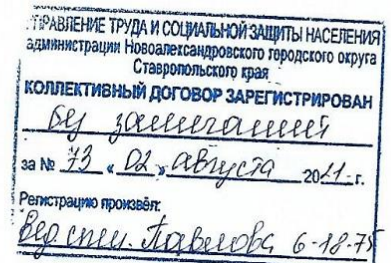 УПРАВЛЕНИЕ ТРУДА И СОЦИАЛЬНОЙ ЗАЩИТЫ НАСЕЛЕНИЯ
администрации Новоалександровского городского округа
Ставропольского края
КОЛЛЕКТИВНЫЙ ДОГОВОР ЗАРЕГИСТРИРОВАН
без замечаний
за № 73 « 02 » августа 2021 г.
Регистрацию произвёл:
Вед. спец. Павлова 6-18-75